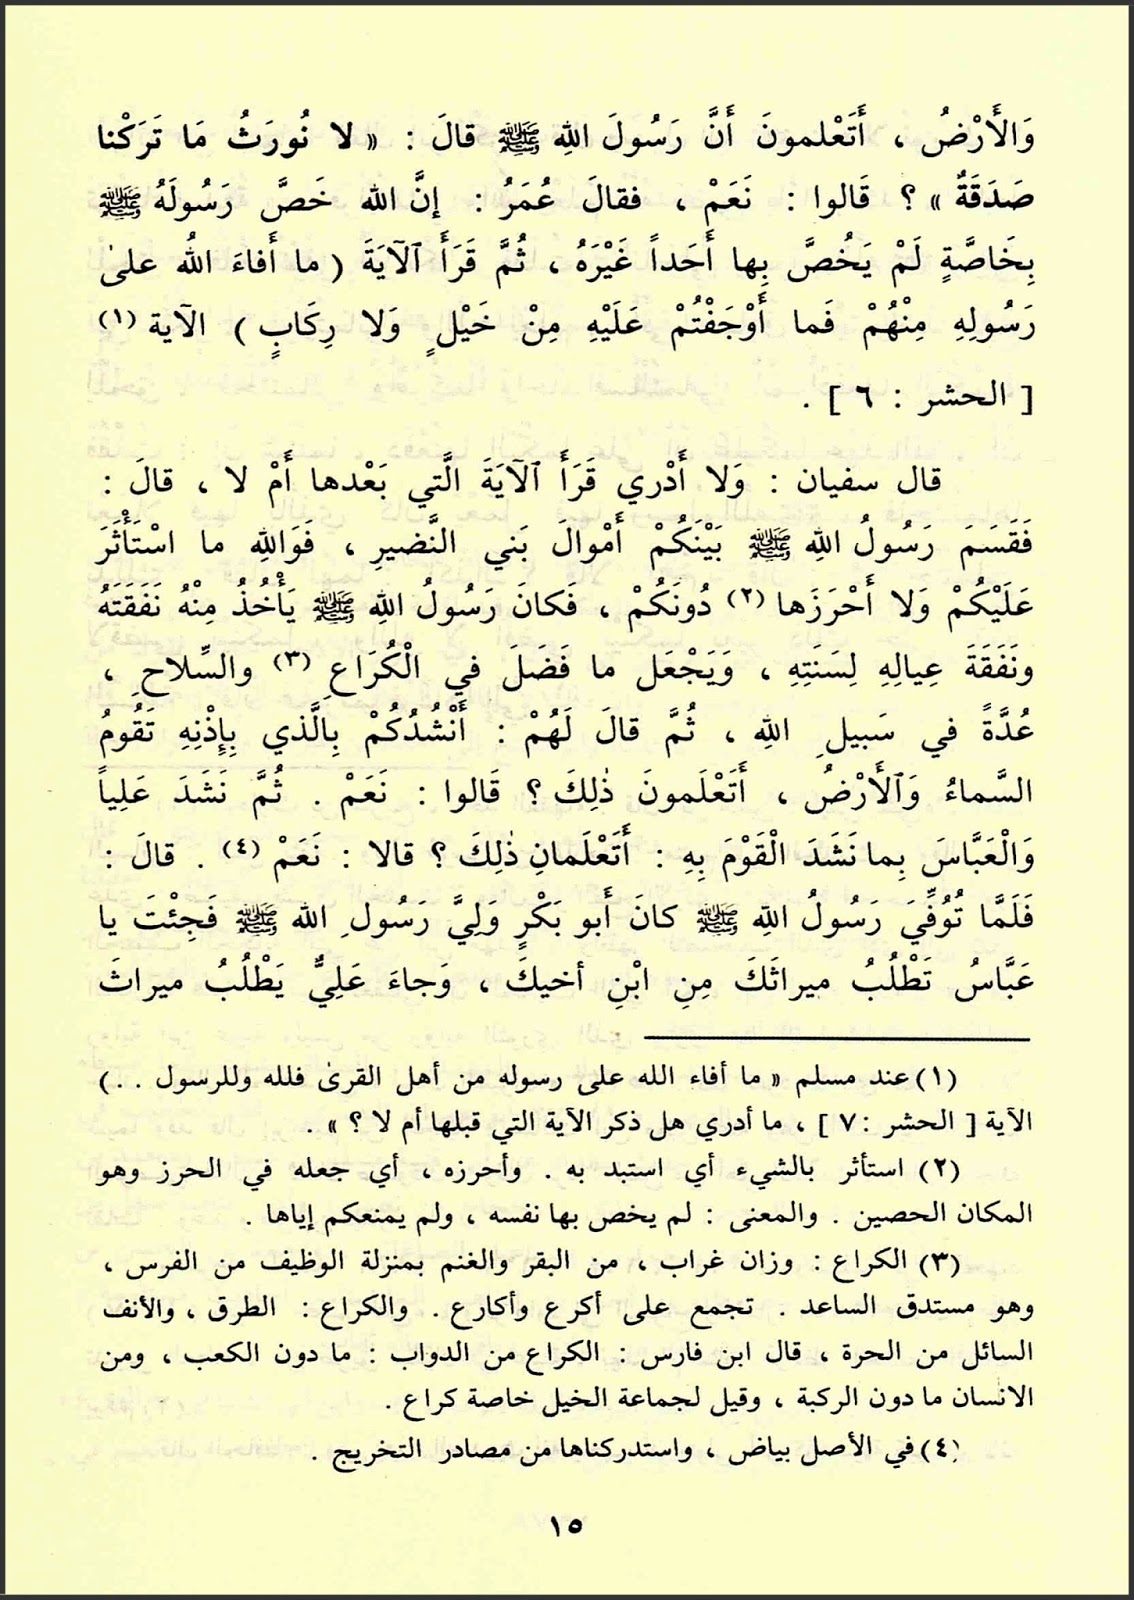 وَالْأَرْضُ ، أَتَعْلمونَ أَنَّ رَسُولَ اللهِ ﷺ قالَ : « لا نُورَثُ مَا تَرَكْنا
صَدَقَةٌ » ؟ قَالوا : نَعَمْ ، فقالَ عُمَرُ : إنَّ الله خَصَّ رَسُولَهُ ﷺ
بِخَاصَّةٍ لَمْ يَخُصَّ بِها أَحَداً غَيْرَهُ ، ثُمَّ قَرَأَ ٱلآيَةَ ( ما أَفاءَ اللهُ علىٰ
رَسُولِهِ مِنْهُمْ فَما أَوْجَفْتُمْ عَلَيْهِ مِنْ خَيْلٍ وَلا رِكَابٍ ) الآية (١)
[ الحشر : ٦ ] .
قال سفيان : وَلا أَدْري قَرَأَ ٱلآيَةَ الَّتي بَعْدها أَمْ لا ، قالَ :
فَقَسَمَ رَسُولُ اللهِ ﷺ بَيْنَكُمْ أَمْوالَ بَني النَّضيرِ ، فَوَاللهِ ما اسْتَأْثَرَ
عَلَيْكُمْ وَلا أَحْرَزَها (٢) دُونَكُمْ ، فَكانَ رَسُولُ اللهِ ﷺ يَأْخُذُ مِنْهُ نَفَقَتَهُ
ونَفَقَةَ عِيالِهِ لِسَنَتِهِ ، وَيَجْعَل ما فَضَلَ في الْكُرَاعِ (٣) والسِّلاحِ ،
عُدَّةً في سَبيلِ اللهِ ، ثُمَّ قالَ لَهُمْ : أَنْشُدُكُمْ بِالَّذي بِإِذْنِهِ تَقُومُ
السَّماءُ وَٱلأَرْضُ ، أَتَعْلَمونَ ذٰلِكَ ؟ قَالوا : نَعَمْ . ثُمَّ نَشَدَ عَلِياً
وَالْعَبَّاسَ بِما نَشَدَ الْقَوْمَ بِهِ : أَتَعْلَمانِ ذٰلِكَ ؟ قالا : نَعَمْ (٤) . قالَ :
فَلَمَّا تُوُفِّيَ رَسُولُ اللهِ ﷺ كانَ أَبو بَكْرٍ وَلِيَّ رَسُولِ الله ﷺ فَجِئْتَ يا
عَبَّاسُ تَطْلُبُ ميراثَكَ مِنِ ابْنِ أخيكَ ، وَجاءَ عَلِيٌّ يَطْلُبُ ميراثَ
(١) عند مسلم « ما أفاء الله على رسوله من أهل القرىٰ فلله وللرسول . . )
الآية [ الحشر : ٧ ] ، ما أدري هل ذكر الآية التي قبلها أم لا ؟ » .
(٢) استأثر بالشيء أي استبد به . وأحرزه ، أي جعله في الحرز وهو
المكان الحصين . والمعنى : لم يخص بها نفسه ، ولم يمنعكم إياها .
(٣) الكراع : وزان غراب ، من البقر والغنم بمنزلة الوظيف من الفرس ،
وهو مستدق الساعد . تجمع على أكرع وأكارع . والكراع : الطرق ، والأنف
السائل من الحرة ، قال ابن فارس : الكراع من الدواب : ما دون الكعب ، ومن
الانسان ما دون الركبة ، وقيل لجماعة الخيل خاصة كراع .
(٤) في الأصل بياض ، واستدركناها من مصادر التخريج .
١٥